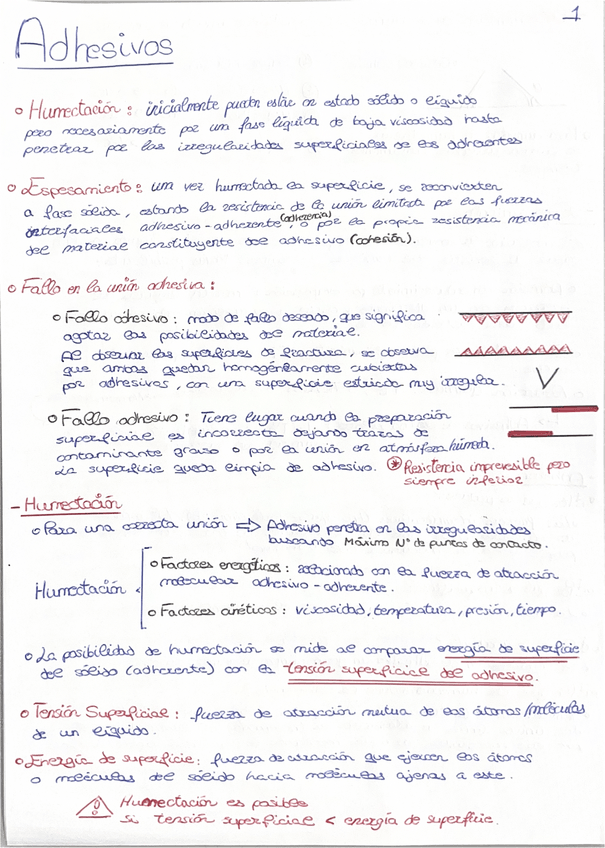 1
Adhesivos
Humectación: inicialmente pueden estár en estado sólido o líquido
pero necesariamente por una fase líquida de baja viscosidad hasta
penetrar por las irregularidades superficiales de los adherentes
Espesamiento: una vez humectada la superficie, se reconvierten
a fase sólida, estando la resistencia de la unión limitada por las fuerzas
interfaciales adhesivo-adherente (adherencia), o por la propia resistencia mecánica
del material constituyente del adhesivo (cohesión).
Fallo en la unión adhesiva:
Fallo cohesivo: modo de fallo deseado, que significa
agotar las posibilidades del material.
Al observar las superficies de fractura, se observa
que ambas quedan homogéneamente cubiertas
por adhesivos, con una superficie estriada muy irregular.
Fallo adhesivo: Tiene lugar cuando la preparación
superficial es incorrecta dejando trazas de
contaminante graso o por la unión en atmósfera húmeda.
La superficie queda limpia de adhesivo. * Resistencia imprevisible pero
siempre inferior
- Humectación
Para una correcta unión ⇒ Adhesivo penetra en las irregularidades
buscando Máximo Nº de puntos de contacto.
Factores energéticos: relacionado con la fuerza de atracción
molecular adhesivo-adherente.
Humectación
Factores cinéticos: viscosidad, temperatura, presión, tiempo.
La posibilidad de humectación se mide al comparar energía de superficie
del sólido (adherente) con la tensión superficial del adhesivo.
Tensión Superficial: fuerza de atracción mutua de los átomos/moléculas
de un líquido.
Energía de superficie: fuerza de atracción que ejercen los átomos
o moléculas del sólido hacia moléculas ajenas a este.
Humectación es posible
Si tensión superficial < energía de superficie.